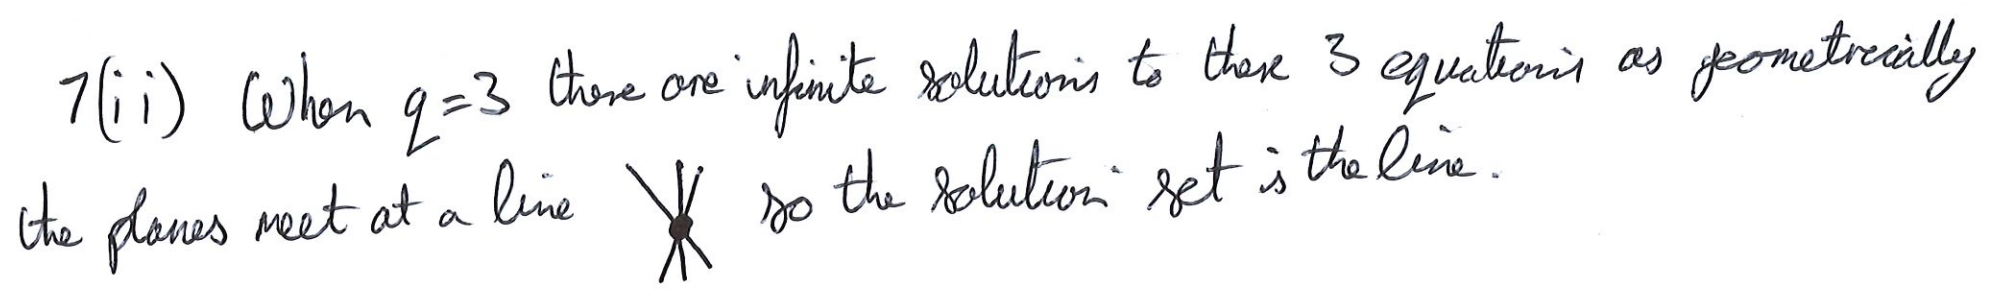 7(ii) When q=3 there are infinite solutions to these 3 equations as geometrically
the planes meet at a line so the solution set is the line.